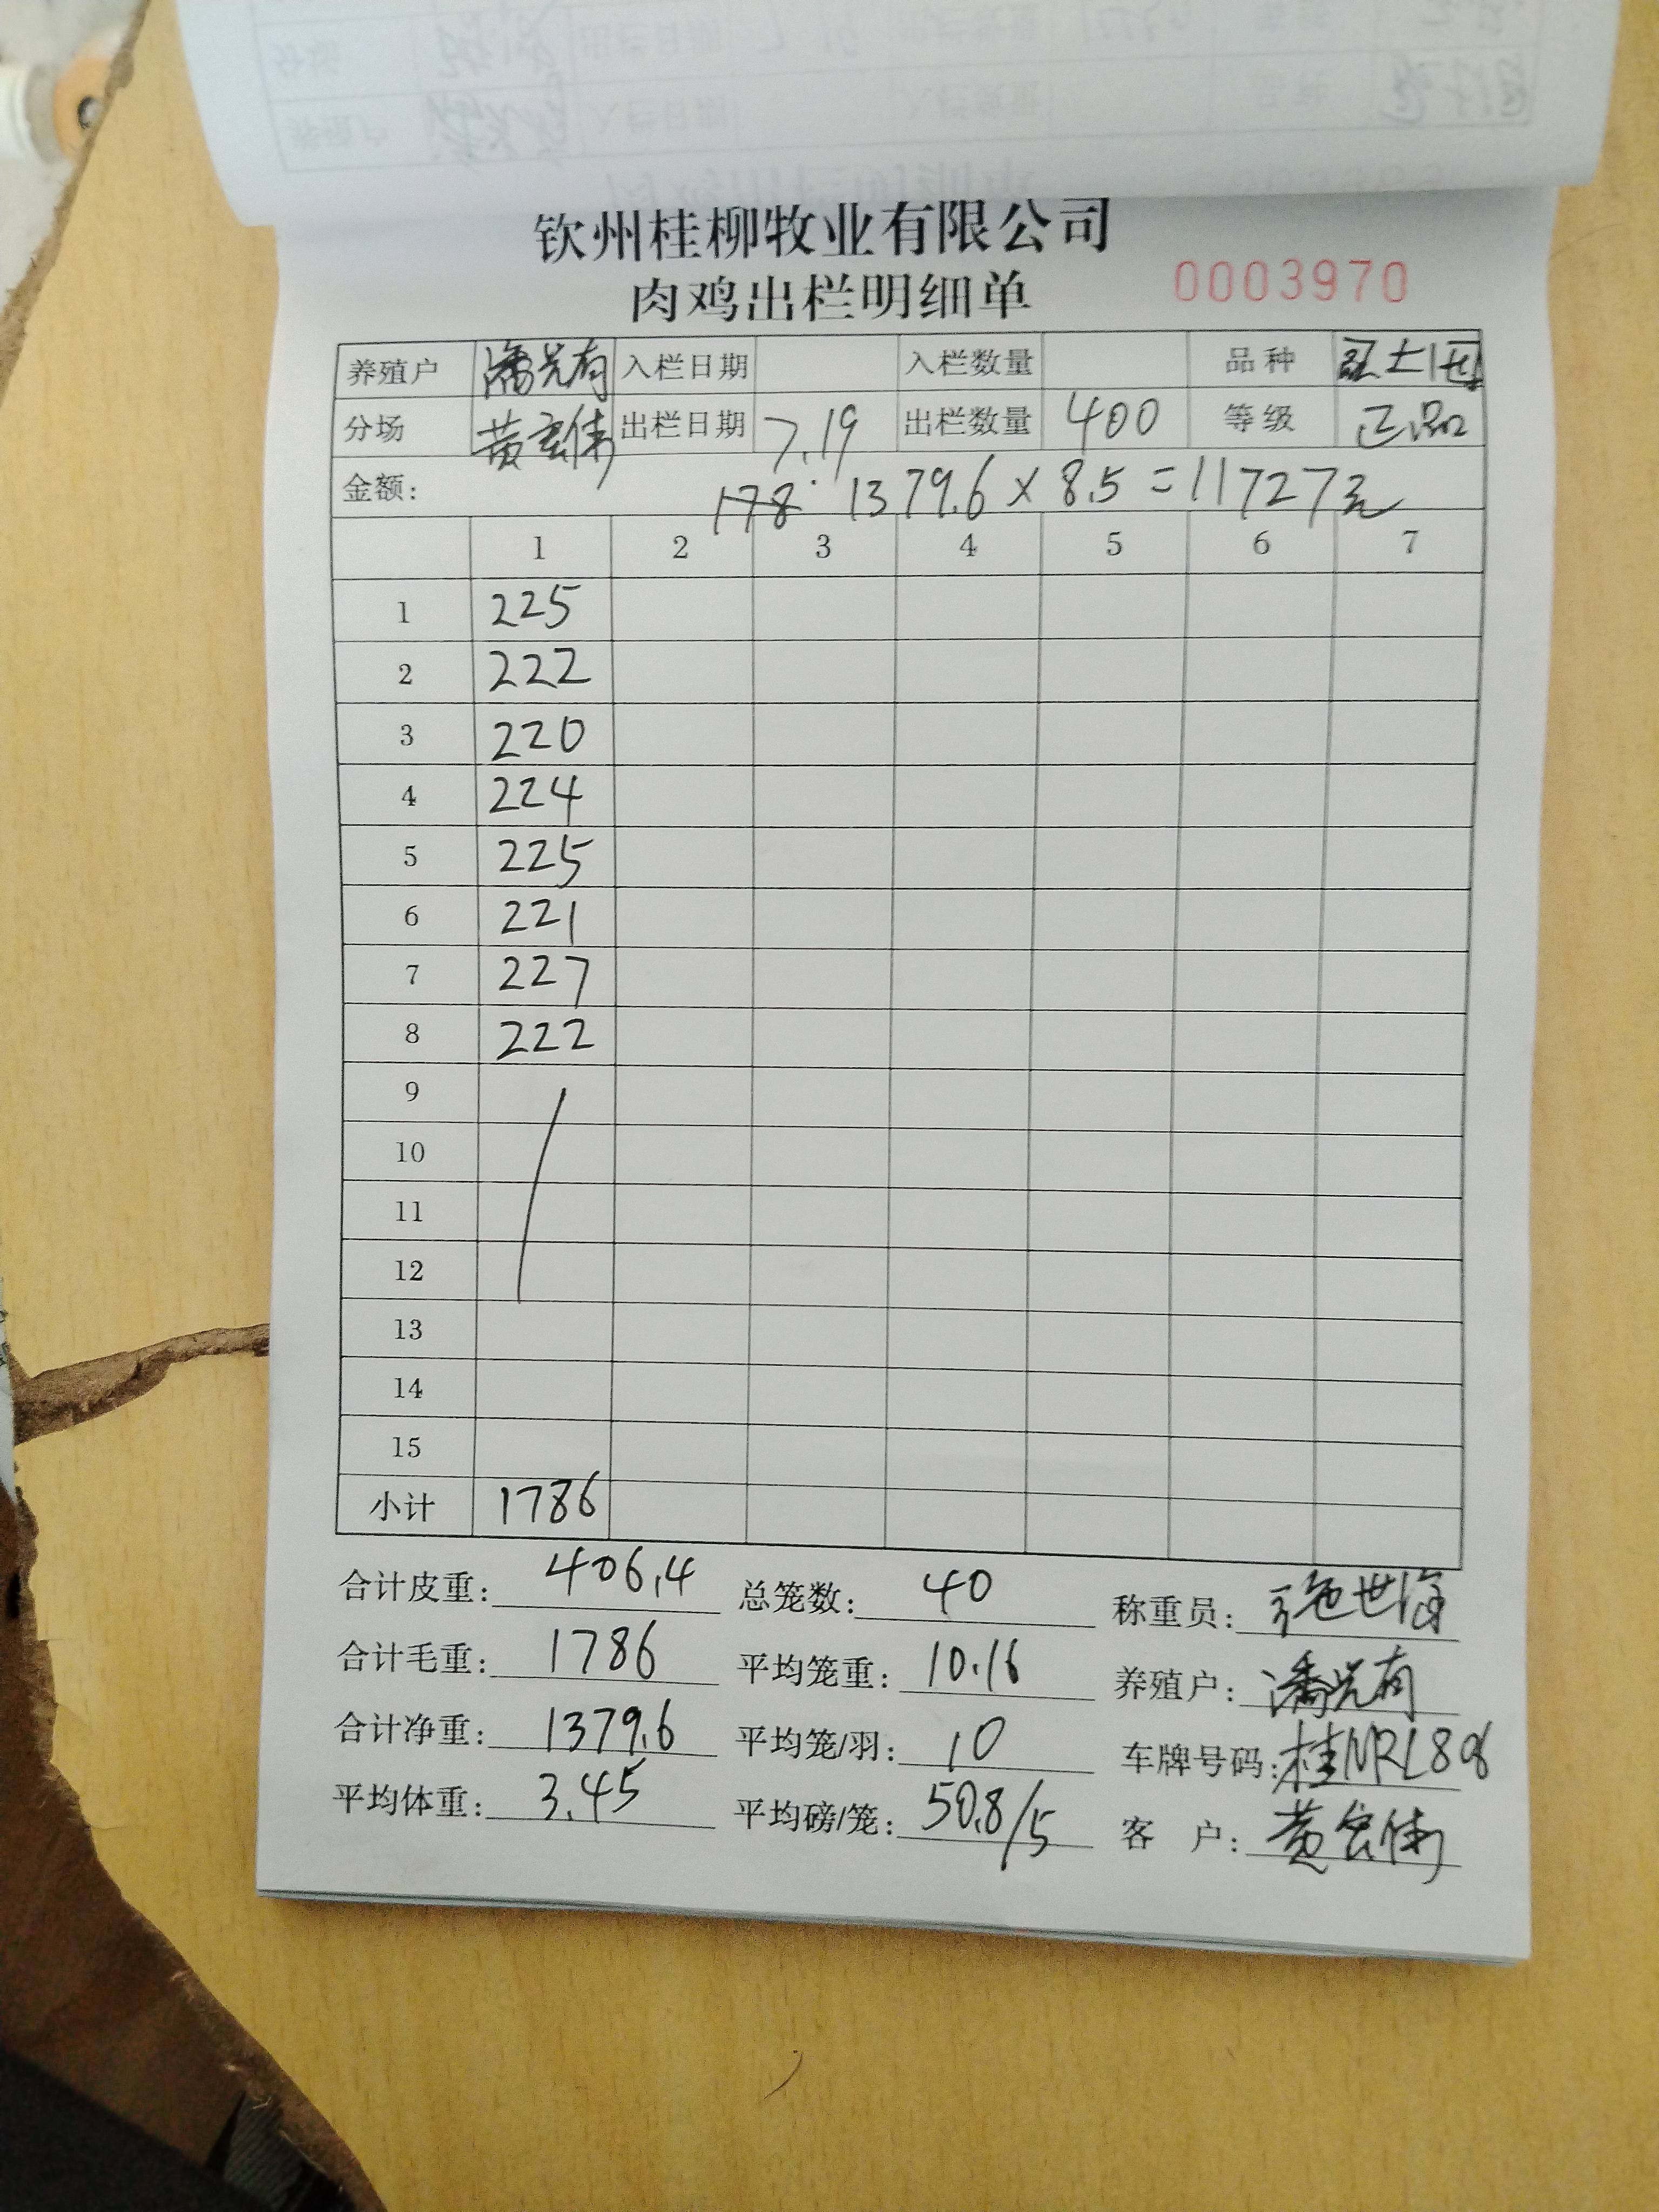 钦州桂柳牧业有限公司
肉鸡出栏明细单 0003970
养殖户 潘光有 入栏日期 入栏数量 品种
分场 黄宏伟 出栏日期 7.19 出栏数量 400 等级 正品
金额: 1379.6×8.5=11727元
1 2 3 4 5 6 7
1 225
2 222
3 220
4 224
5 225
6 221
7 227
8 222
9
10
11
12
13
14
15
小计 1786
合计皮重: 406.4 总笼数: 40 称重员: 世海
合计毛重: 1786 平均笼重: 10.16 养殖户: 潘光有
合计净重: 1379.6 平均笼/羽: 10 车牌号码: 桂NRL808
平均体重: 3.45 平均磅/笼: 50.8/5 客 户: 黄宏伟